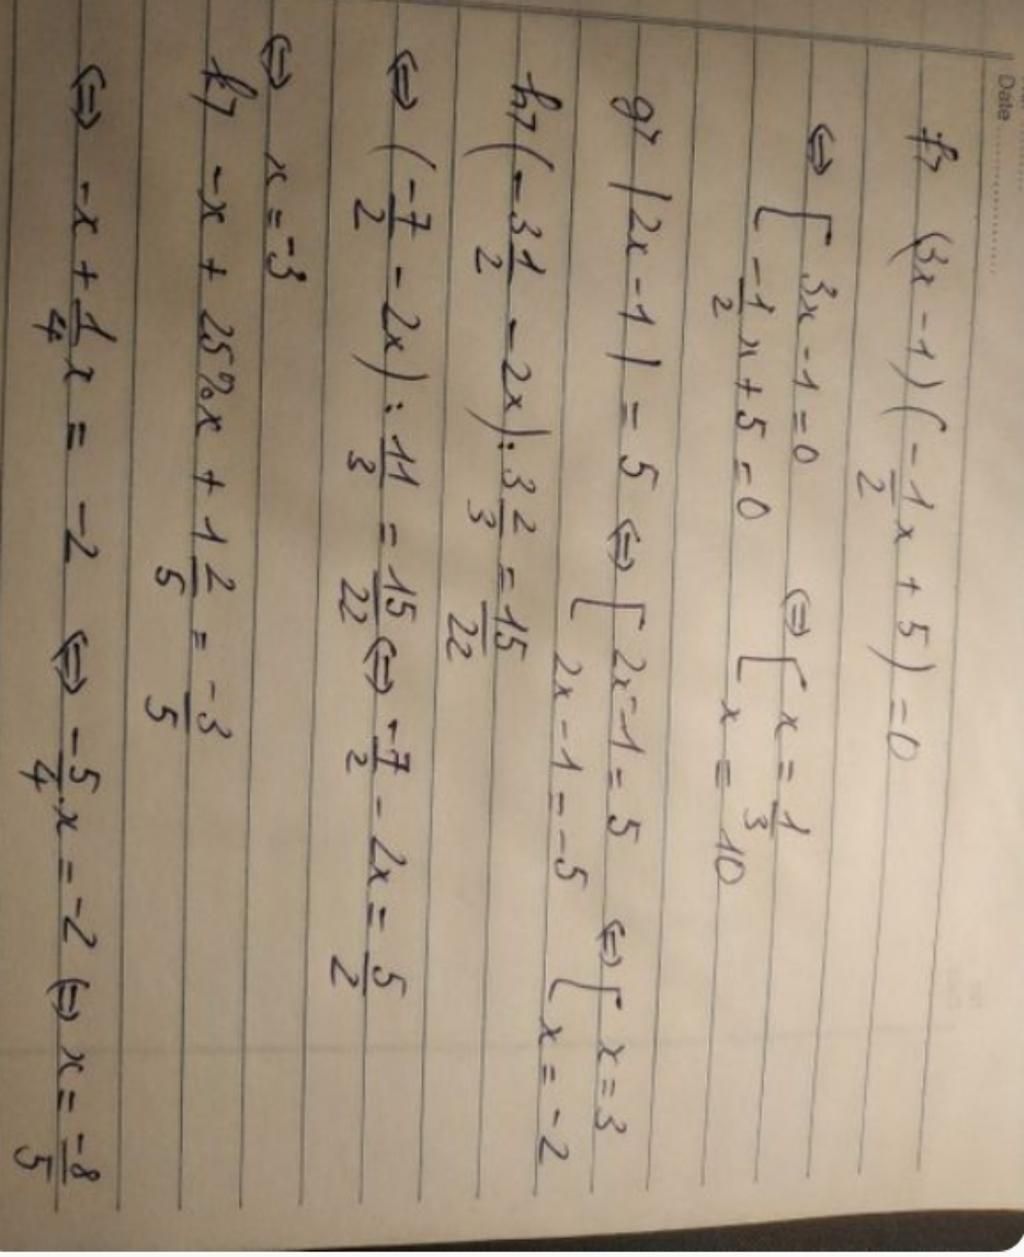 Date
f, (3x - 1)(-1/2 x + 5) = 0
⇔ [ 3x - 1 = 0 ⇔ [ x = 1/3
-1/2 x + 5 = 0 x = 10
g, |2x - 1| = 5 ⇔ [ 2x - 1 = 5 ⇔ [ x = 3
2x - 1 = -5 x = -2
h, (-3 1/2 - 2x) : 3 2/3 = 15/22
⇔ (-7/2 - 2x) : 11/3 = 15/22 ⇔ -7/2 - 2x = 5/2
⇔ x = -3
k, -x + 25%x + 1 2/5 = -3/5
⇔ -x + 1/4 x = -2 ⇔ -5/4 . x = -2 ⇔ x = -8/5